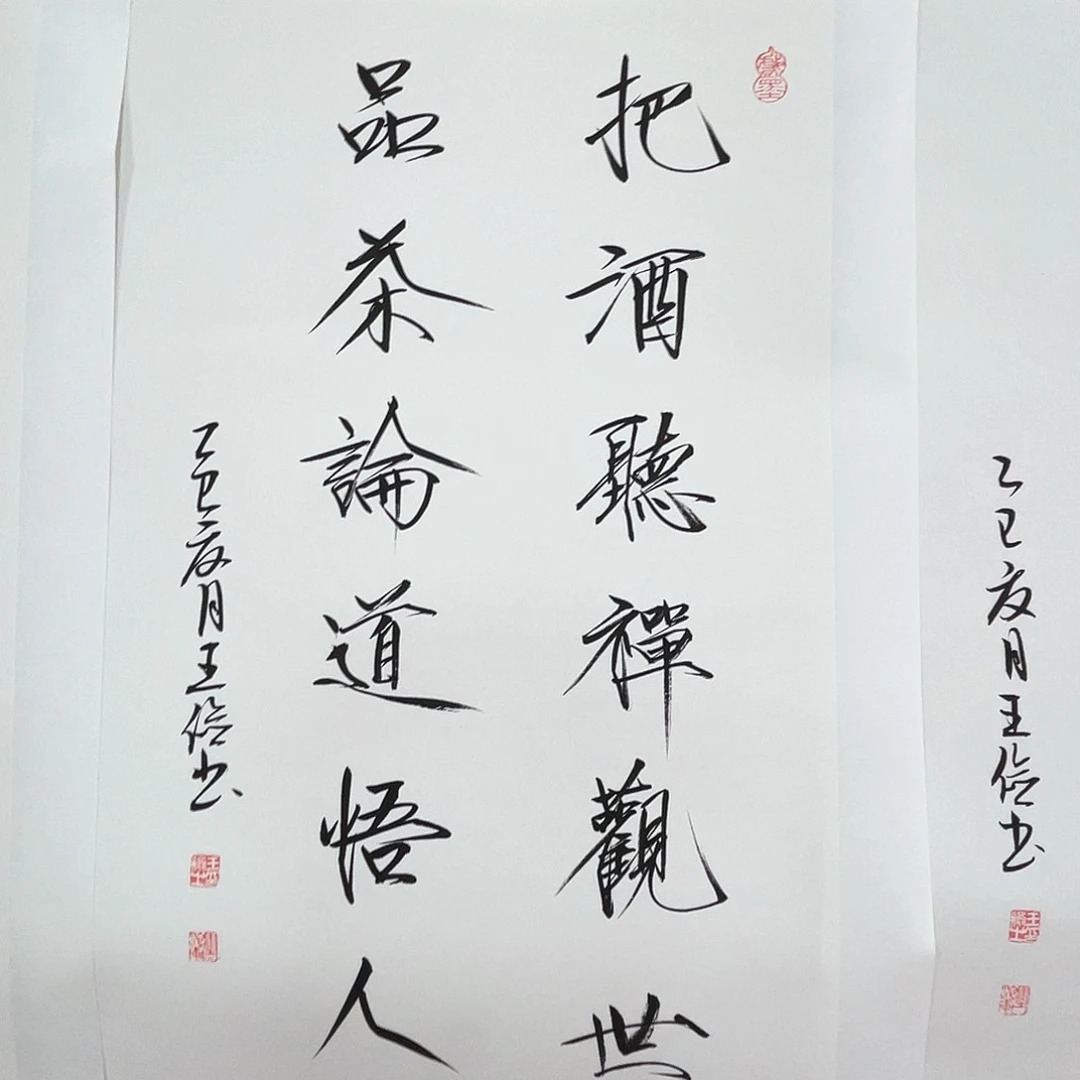 乙巳夏月王书
把酒聽禪觀世
品茶論道悟人
乙巳夏月王书